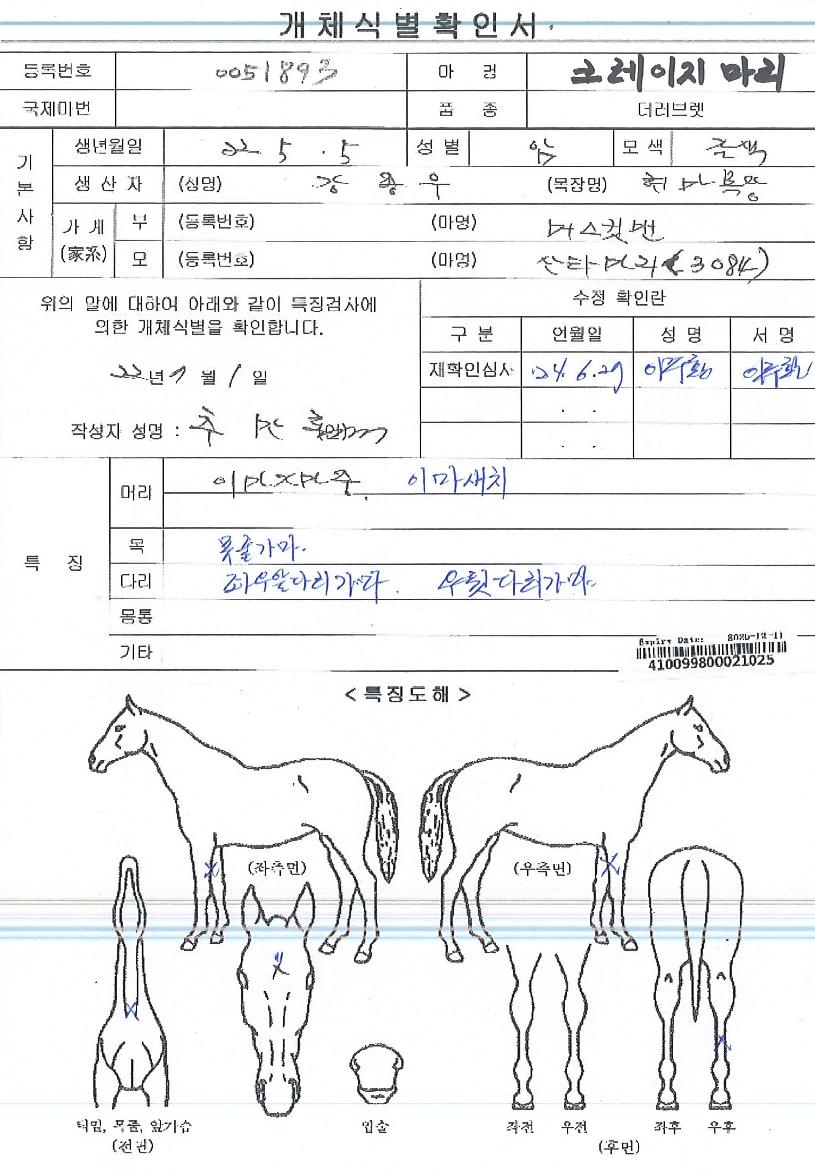 개체식별확인서
등록번호 0051893 마 명 크레이지 마리
국제마번 품 종 더러브렛
기본사항
생년월일 22 5 . 5 성별 암 모색 갈색
생 산 자 (성명) 강 종 우 (목장명)
가계(家系) 부 (등록번호) (마명) 머스킷맨
모 (등록번호) (마명) 산타마리(3084)
위의 말에 대하여 아래와 같이 특징검사에
의한 개체식별을 확인합니다.
수정 확인란
구 분 연월일 성 명 서 명
재확인심사 24. 6. 29
22년 9 월 1 일
작성자 성명 :
특 징
머리 이마가마중. 이마새치
목 목줄가마.
다리 좌우앞다리가마. 우뒷다리가마.
몸통
기타
Expiry Date:
410099800021025
<특징도해>
(좌측면) (우측면)
턱밑, 목줄, 앞가슴
(전면)
입술
좌전 우전 좌후 우후
(후면)